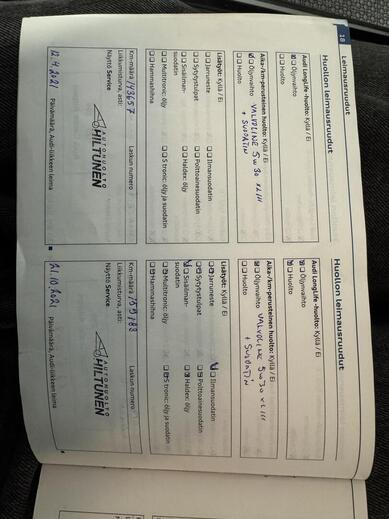 18
Leimausruudut
Huollon leimausruudut
Audi LongLife -huolto: Kyllä / Ei
Öljynvaihto
Huolto
Aika-/km-perusteinen huolto: Kyllä / Ei
Öljynvaihto VALVOLINE 5W30 XL III
Huolto + SUODATIN
Lisätyöt: Kyllä / Ei
Jarruneste
Ilmansuodatin
Sytytystulpat
Polttoainesuodatin
Sisäilman-
suodatin
Haldex: öljy
Multitronic: öljy
S tronic: öljy ja suodatin
Hammashihna
Km-määrä 143657
Laskun numero
Liikkumisturva, asti:
Näyttö Service
AUTOHUOLTO
HILTUNEN
12.4.2021
Päivämäärä, Audi-liikkeen leima
Huollon leimausruudut
Audi LongLife -huolto: Kyllä / Ei
Öljynvaihto
Huolto
Aika-/km-perusteinen huolto: Kyllä / Ei
Öljynvaihto VALVOLINE 5W30 XL III
Huolto + SUODATIN
Lisätyöt: Kyllä / Ei
Jarruneste
Ilmansuodatin
Sytytystulpat
Polttoainesuodatin
Sisäilman-
suodatin
Haldex: öljy
Multitronic: öljy
S tronic: öljy ja suodatin
Hammashihna
Km-määrä
Laskun numero
Liikkumisturva, asti:
Näyttö Service
AUTOHUOLTO
HILTUNEN
21.10.2021
Päivämäärä, Audi-liikkeen leima